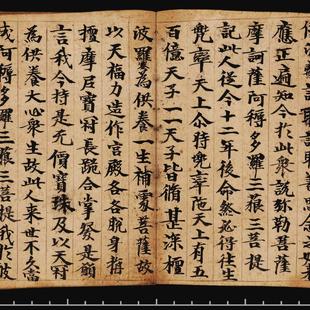 應正遍知今於此眾說弥勒菩薩
摩訶薩阿耨多羅三藐三菩提
記此人從今十二年後命終必得往生
兜率天上尒時兜率陁天上有五
百億天子一一天子皆脩甚深檀
波羅蜜為供養一生補處菩薩故
以天福力造作宮殿各各脫身栴
檀摩尼寶冠長跪合掌發是願
言我今持是无價寶珠及以天冠
為供養大心眾生故此人来世不久當
成阿耨多羅三藐三菩提我於彼